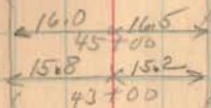 16.0 16.5
45+00
15.8 15.2
43+00